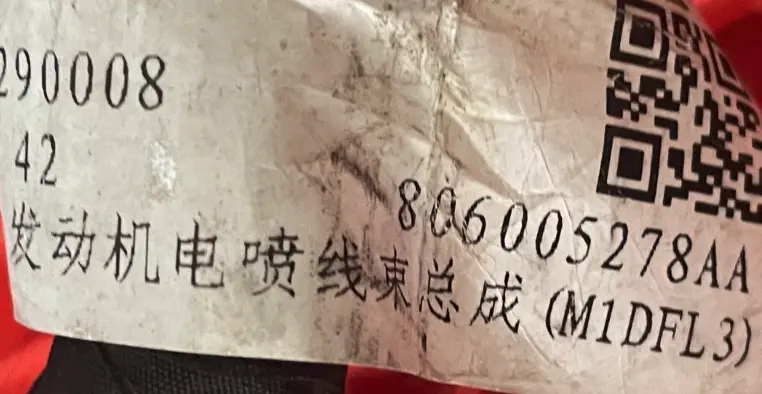 290008
42
806005278AA
发动机电喷线束总成(M1DFL3)